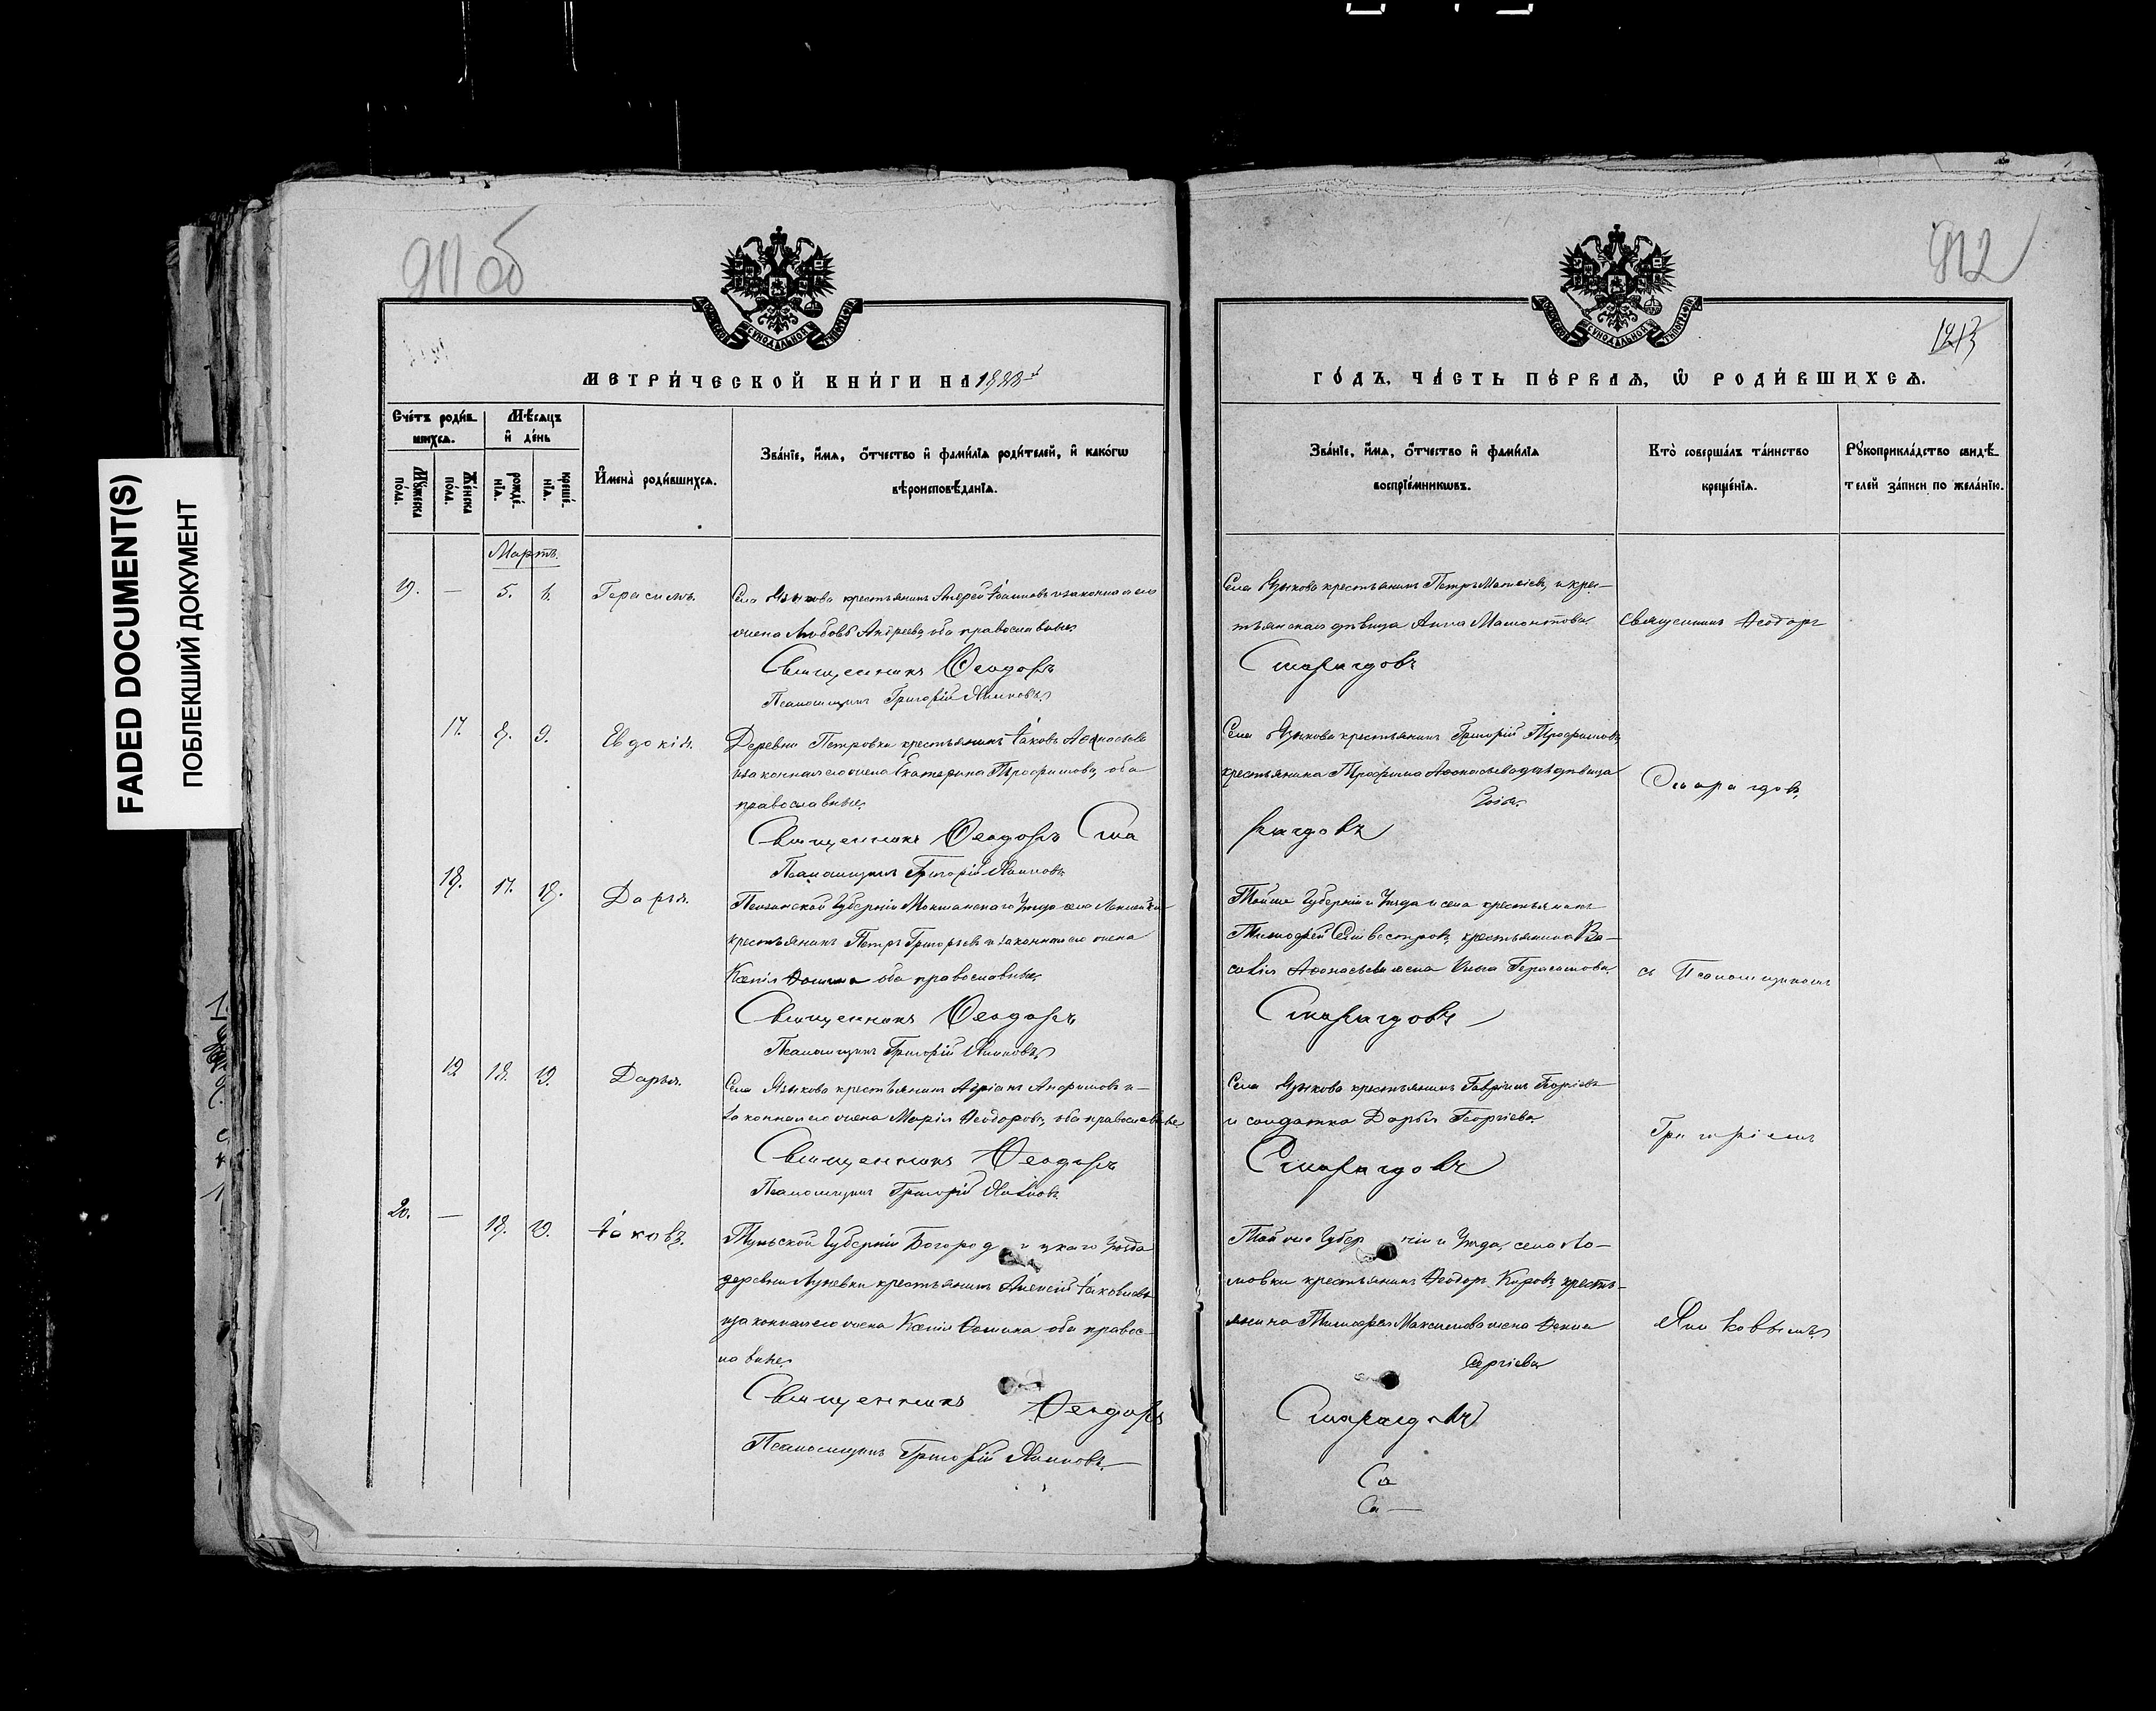 FADED DOCUMENT(S)
ПОБЛЕКШИЙ ДОКУМЕНТ
911 об
МЕТРИЧЕСКОЙ КНИГИ НА 1888
Счетъ родив-
шихся.
Мѣсяцъ
и день
Мужеска
пола.
Женска
пола.
рожде-
нія.
креще-
нія.
Имена родившихся.
Званіе, имя, отчество и фамилія родителей, и какогѡ
вѣроисповѣданія.
Мартъ.
19. — 5. 6. Герасимъ.
Села Языкова крестьянинъ Андрей Іоанновъ и законная его
жена Любовь Андреева, оба православные.
Священникъ Ѳеодоръ
Псаломщикъ Григорій
17. 8. 9. Евдокія.
Деревни Петровки крестьянинъ Іаковъ Аѳанасьевъ
и законная его жена Екатерина Трофимова, оба
православные.
Священникъ Ѳеодоръ Сма
Псаломщикъ Григорій
18. 17. 18. Дарья.
Пензенской Губерніи Мокшанскаго Уѣзда села
крестьянинъ Петръ Григорьевъ и законная его жена
Ксенія оба православные.
Священникъ Ѳеодоръ
Псаломщикъ Григорій
19 18. 19. Дарья.
Села Языкова крестьянинъ Адріанъ Анфимовъ и
законная его жена Марія Ѳеодорова, оба православные
Священникъ Ѳеодоръ
Псаломщикъ Григорій
20. — 18. 19. Іаковъ.
Тульской Губерніи Богородицкаго Уѣзда
деревни крестьянинъ Алексій Іаковлевъ
и законная его жена Ксенія оба правос-
лавные.
Священникъ Ѳеодоръ
Псаломщикъ Григорій
912
1213
ГОДЪ, ЧАСТЬ ПЕРВАЯ, Ѡ РОДИВШИХСЯ.
Званіе, имя, отчество и фамилія
воспріемниковъ.
Кто совершалъ таинство
крещенія.
Рукоприкладство свидѣ-
телей записи по желанію.
Села Языкова крестьянинъ Петръ Матвѣевъ, и крес-
тьянская дѣвица Анна Мамонтова.
Священникъ Ѳеодоръ
Смарагдовъ
Села Языкова крестьянинъ Григорій Трофимовъ,
крестьянина Трофима Аѳанасьева дочь дѣвица
Смарагдовъ,
рагдовъ
Той же Губерніи и Уѣзда и села крестьянинъ
Тимофей Селивестровъ, крестьянина Ва-
силія Аѳанасьева жена Герасимова
съ Псаломщикомъ
Смарагдовъ
Села Языкова крестьянинъ Гавріилъ Георгіевъ
и солдатка Дарья Георгіева.
Григоріемъ
Смарагдовъ
Той же Губерніи и Уѣзда, села Ло-
мовки крестьянинъ Ѳеодоръ Карповъ, кресть-
янина Тимофея Максимова жена
Сергіева
Смарагдовъ
Са
Са